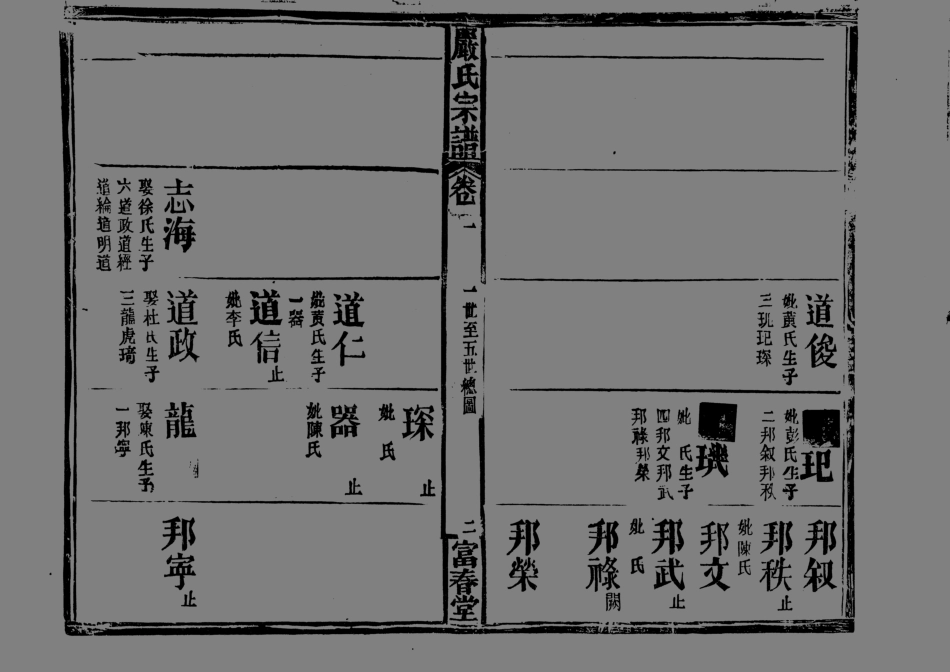 道俊
妣黄氏生子
三玑玘琛
玘
妣彭氏生子
二邦叙邦秩
璣
妣 氏生子
四邦文邦武
邦祿邦榮
邦叙
邦秩止
妣陳氏
邦文
邦武止
妣 氏
邦祿闕
邦榮
嚴氏宗譜
卷一
一世至五世總圖
二
富春堂
志海
娶徐氏生子
六道政道經
道綸道明道
道仁
妣黄氏生子
一器
道信止
妣李氏
道政
娶杜氏生子
三龍虎瑃
琛
妣 氏
止
器
妣陳氏
止
龍
娶陳氏生子
一邦寧
邦寧止